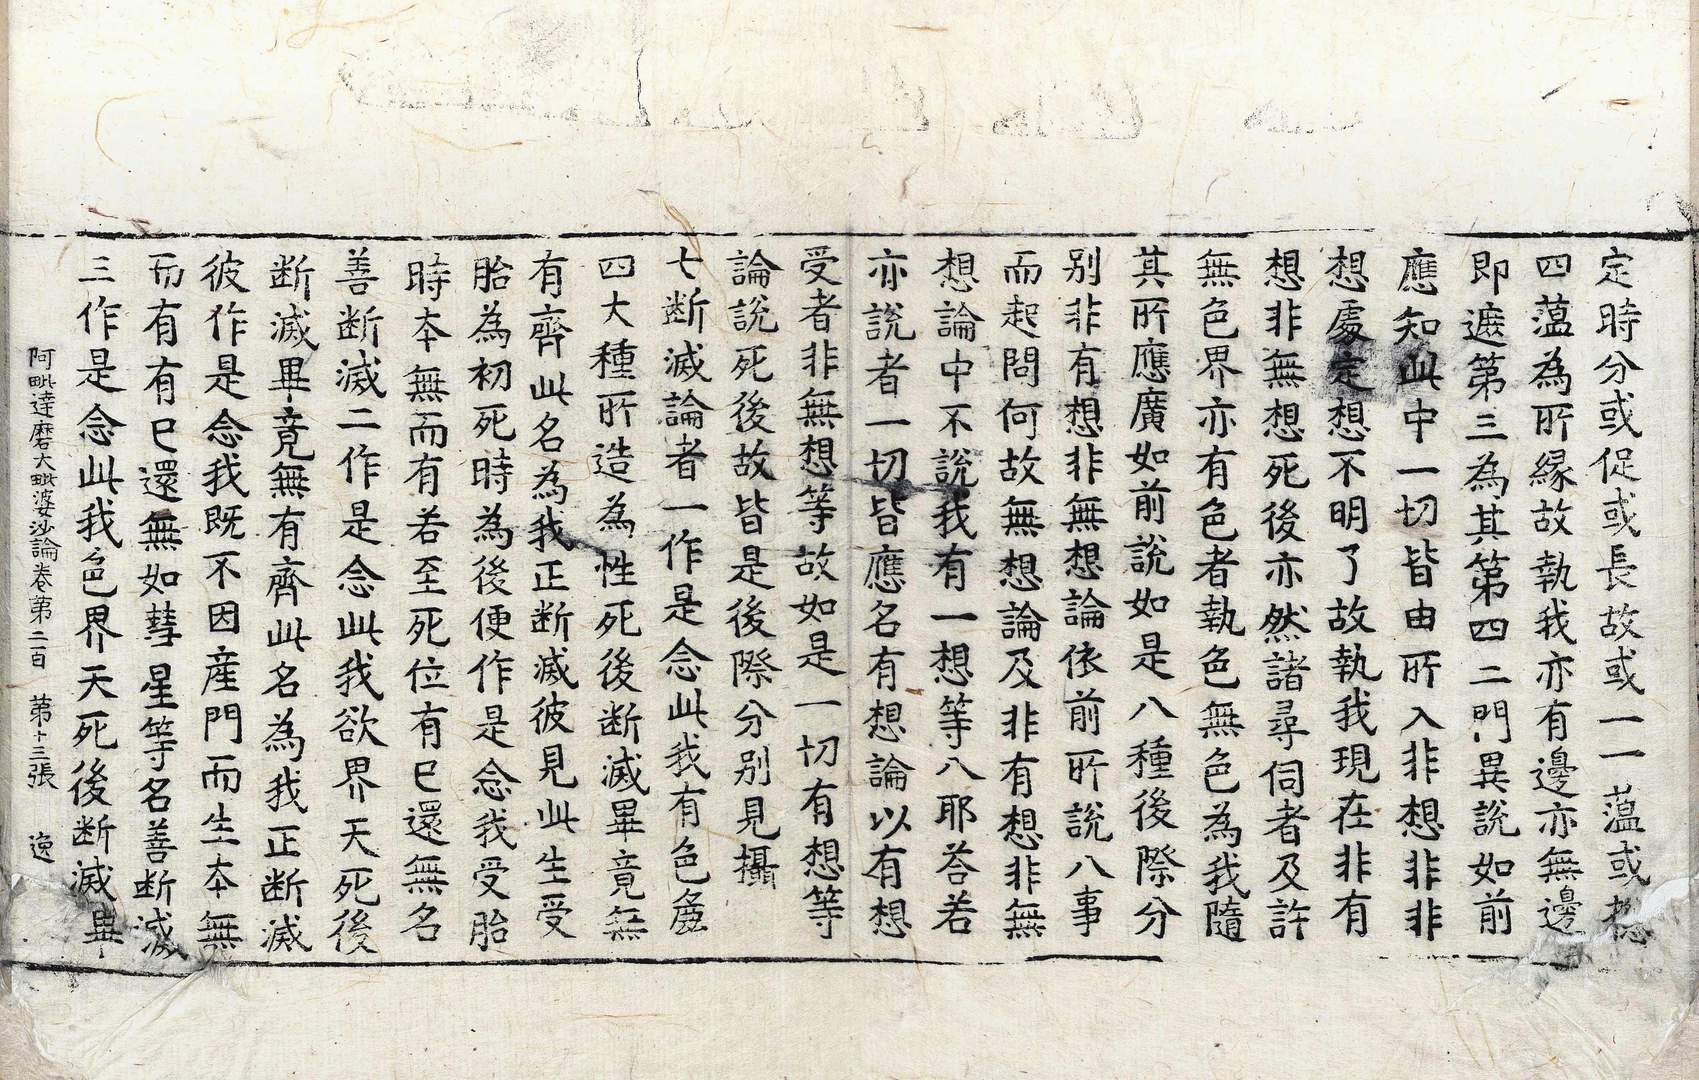 定時分或促或長故或一一蘊或捴
四蘊為所緣故執我亦有邊亦無邊
即遮第三為其第四二門異說如前
應知此中一切皆由所入非想非非
想處定想不明了故執我現在非有
想非無想死後亦然諸尋伺者及許
無色界亦有色者執色無色為我隨
其所應廣如前說如是八種後際分
別非有想非無想論依前所說八事
而起問何故無想論及非有想非無
想論中不說我有一想等八耶荅若
亦說者一切皆應名有想論以有想
受者非無想等故如是一切有想等
論說死後故皆是後際分別見攝
七斷滅論者一作是念此我有色麁
四大種所造為性死後斷滅畢竟無
有齊此名為我正斷滅彼見此生受
胎為初死時為後便作是念我受胎
時本無而有若至死位有已還無名
善斷滅二作是念此我欲界天死後
斷滅畢竟無有齊此名為我正斷滅
彼作是念我既不因産門而生本無
而有有已還無如彗星等名善斷滅
三作是念此我色界天死後斷滅畢
阿毗達磨大毗婆沙論卷第二百　第十三張　逸